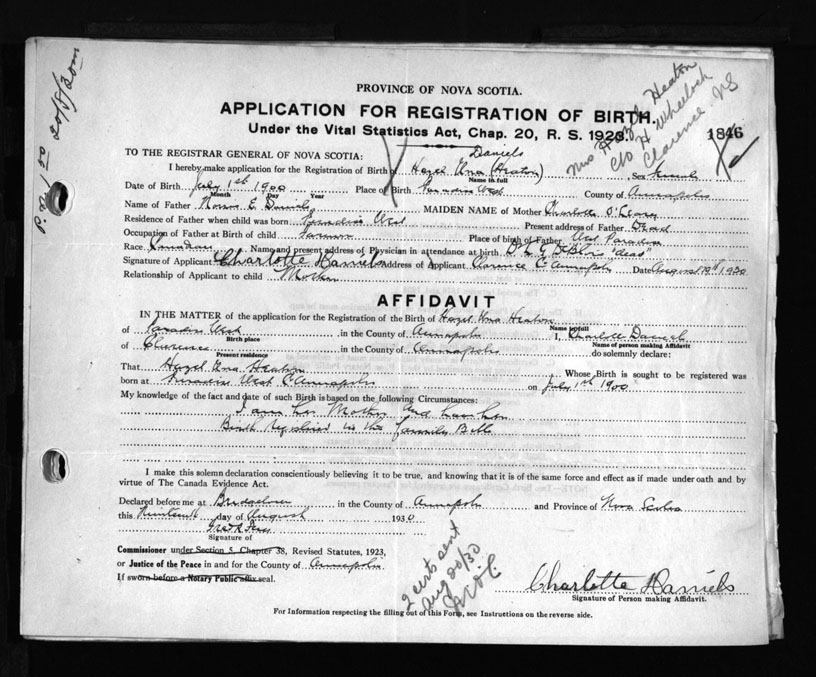 PROVINCE OF NOVA SCOTIA.
APPLICATION FOR REGISTRATION OF BIRTH.
Under the Vital Statistics Act, Chap. 20, R. S. 1923.
1846
Mrs Hazel Heaton
c/o H Wheelock
Clarence NS
20/8/30
TO THE REGISTRAR GENERAL OF NOVA SCOTIA:
Daniels
I hereby make application for the Registration of Birth of Hazel Una (Heaton) Sex Female
Name in full
Date of Birth July 1st 1900 Place of Birth Paradise West County of Annapolis
Month Day Year
Name of Father Norris E Daniels MAIDEN NAME of Mother Charlotte O'Leary
Residence of Father when child was born Paradise West Present address of Father Dead
Occupation of Father at Birth of child Farmer Place of birth of Father West Paradise
Race Canadian Name and present address of Physician in attendance at birth "dead"
Signature of Applicant Charlotte Daniels Address of Applicant Clarence Co Annapolis Date August 19th 1930
Relationship of Applicant to child Mother
AFFIDAVIT
IN THE MATTER of the application for the Registration of the Birth of Hazel Una Heaton
Name in full
of Paradise West in the County of Annapolis I, Charlotte Daniels
Birth place Name of person making Affidavit
of Clarence in the County of Annapolis do solemnly declare:
Present residence
That Hazel Una Heaton Whose Birth is sought to be registered was
born at Paradise West Co Annapolis on July 1st 1900
My knowledge of the fact and date of such Birth is based on the following Circumstances:
I am her Mother and have her
Birth Registered in the family Bible
I make this solemn declaration conscientiously believing it to be true, and knowing that it is of the same force and effect as if made under oath and by
virtue of The Canada Evidence Act.
Declared before me at Bridgetown in the County of Annapolis and Province of Nova Scotia
this Nineteenth day of August 1930
Signature of
Commissioner under Section 5, Chapter 38, Revised Statutes, 1923,
or Justice of the Peace in and for the County of Annapolis
If sworn before a Notary Public affix seal.
2 certs sent
Aug 20/30
Charlotte Daniels
Signature of Person making Affidavit.
For Information respecting the filling out of this Form, see Instructions on the reverse side.